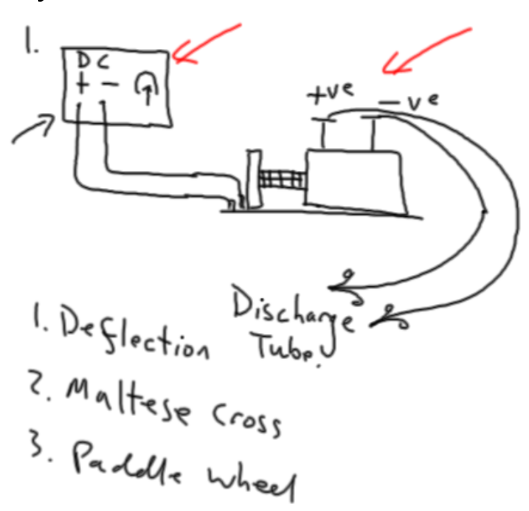 1.
DC
+ -
+ve -ve
Discharge
Tube.
1. Deflection
2. Maltese cross
3. Paddle wheel